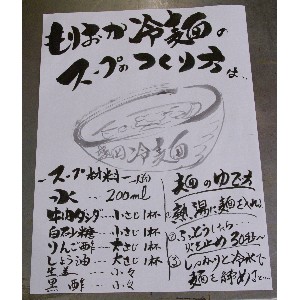 もりおか冷麺の
スープのつくり方は…
盛岡冷麺
スープ材料 一人前
水 … 200ml
牛肉ダシダ … 小さじ1杯
白砂糖 … 小さじ1杯
りんご酢 … 大さじ1杯
しょう油 … 大さじ1杯
生姜 … 少々
黒酢 … 少々
麺のゆで方
① 熱湯に麺を入れ
② ふっとうしたら
火を止め 30秒〜
③ しっかりと冷水で
麺を締めます…